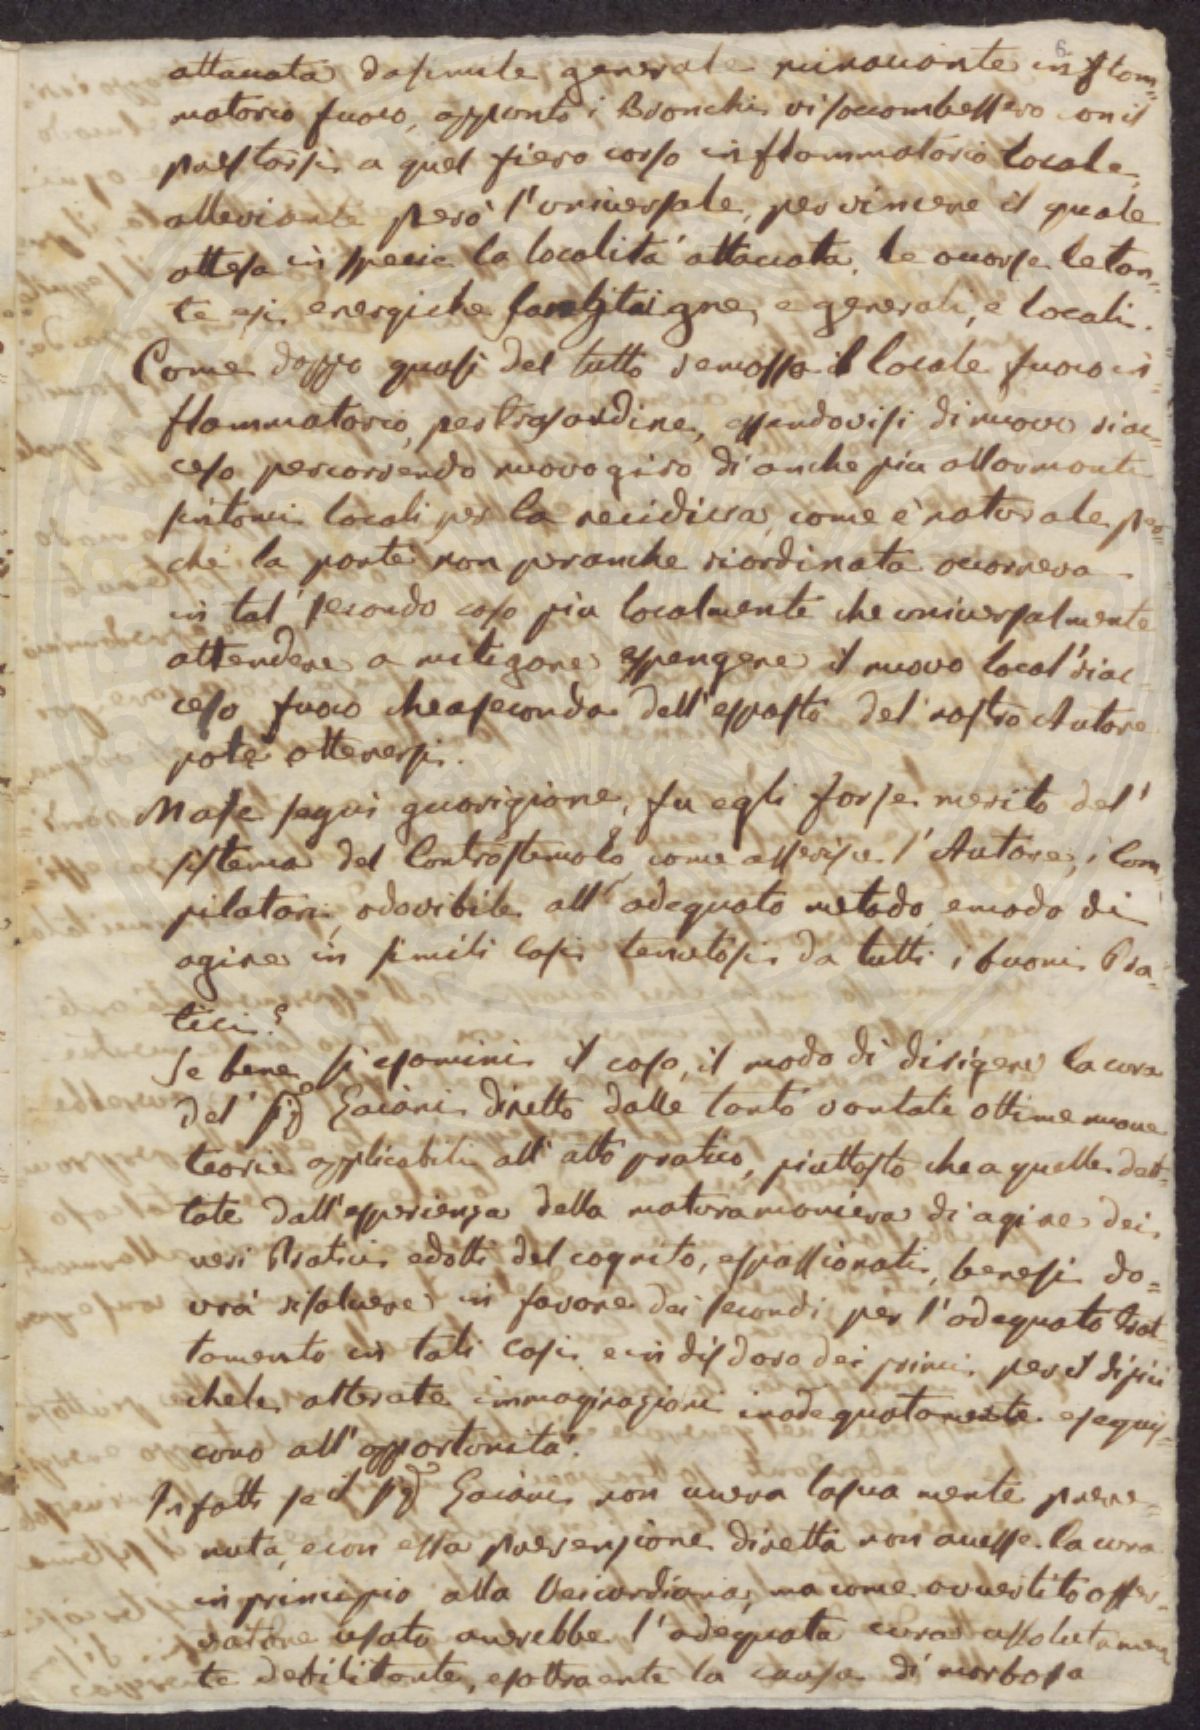 6.
attaccata da simile generale minacciante inflam=
matorio fuoco, appunto i Bronchi vi soccombessero con il
prestarsi a quel fiero corso inflammatorio locale,
alleviante però l'universale, per vincere il quale
attesa in specie la località attaccata, le occorse le tan=
te e si energiche sanguigne, e generali, e locali.
Come doppo quasi del tutto remosso il locale fuoco in=
flammatorio, per trasordine, essendovisi di nuovo riac=
ceso percorrendo nuovo giro di anche piu allarmanti
sintomi locali per la recidiva, come è naturale per=
chè la parte non peranche riordinata occorreva
in tal' secondo caso piu localmente che universalmente
attendere a mitigare espengere il nuovo local' riac=
ceso fuoco che a seconda dell'esposto del nostro Autore
potè ottenersi.
Ma se seguì guarigione, fu egli forse merito del'
sistema del Controstimolo, come asserisce l'Autore, i Com=
pilatori, o dovibile all' adequato metodo, e modo di
agire in simili casi tenutosi da tutti i buoni Pra=
tici?
Se bene si esamini il caso, il modo di dirigere la cura
del' Sig.e Gaiani diretto dalle tanto vantate ottime nuove
teorie applicabili all' atto pratico, piuttosto che a quelle det=
tate dall'esperienza della natura maniera di agire dei
veri Pratici edotti del cognito, e spassionati, benesi do=
vrà risolvere in favore dei secondi per l'adequato trat=
tamento in tali casi e in disdoro dei primi per il di piu
che le alterate immaginazioni inadequatamente eseguis=
cono all'opportunità.
Infatti se il Sig.e Gaiani non aveva la sua mente preve=
nuta, e con essa prevenzione diretta non avesse la cura
in principio alla Vaccordiana, ma come avvertito osser=
vatore usato averebbe l'adequata cura assolutamen=
te debilitante, e sottraente la causa di morbosa